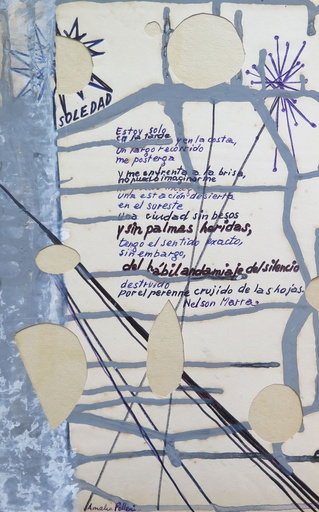 SOLEDAD
Estoy solo
en la tarde y en la costa,
Un largo recorrido
me posterga
y me enfrenta a la brisa,
no puedo imaginarme
una estación desierta
en el sureste
una ciudad sin besos
y sin palmas heridas,
tengo el sentido exacto,
sin embargo,
del hábil andamiaje del silencio
destruido
por el perenne crujido de las hojas.
Nelson Marra.
Amalia